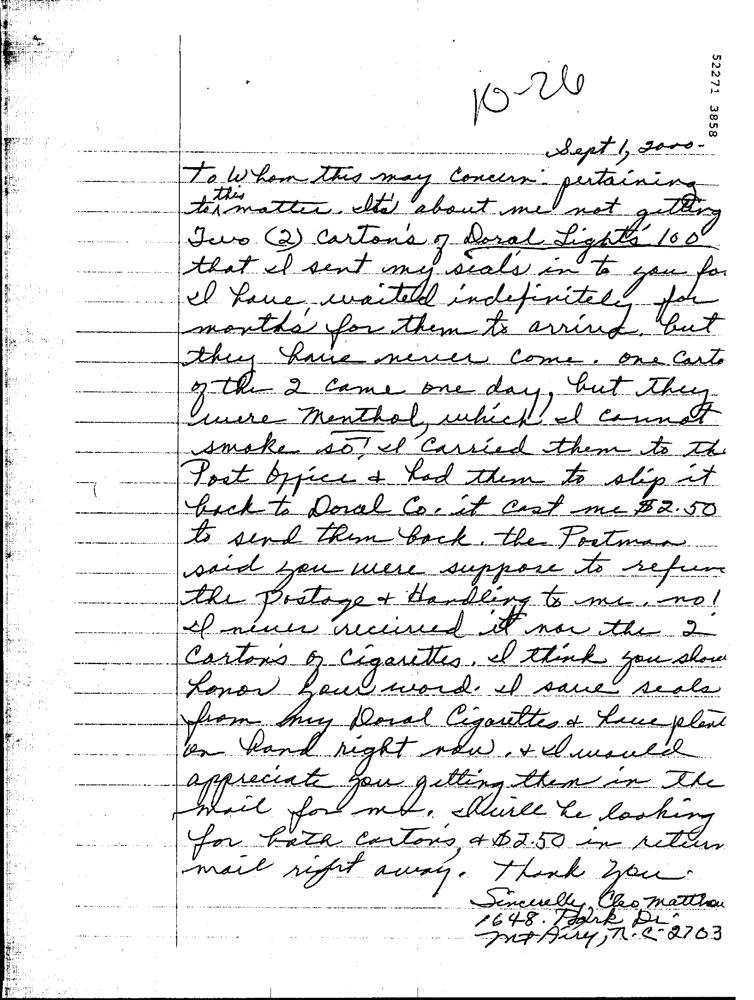 10-26
52271 3858
Sept 1, 2000-
To Whom this may Concern: pertaining
this
to matter. Its' about me not getting
Two (2) Carton's of Doral Light's 100
that I sent my seal's in to you for
I have waited indefinitely for
months' for them to arrive. but
they have never come. one Carto
of the 2 came one day, but they
were Menthol, which I cannot
smoke so! I carried them to the
Post Office & had them to slip it
back to Doral Co. it cost me $2.50
to send them back. the Postman
said you were suppose to refun
the Postage & Handling to me. no!
I never received it nor the 2
Carton's of Cigarettes. I think you shou
honor your word. I save seals
from my Doral Cigarettes & have plent
on hand right now. & I would
appreciate you getting them in the
mail for me. I will be looking
for both carton's, & $2.50 in return
mail right away. Thank you.
Sincerelly, Cleo Matthew
1648. Park Dr.
Mt Airy, N.C- 2703